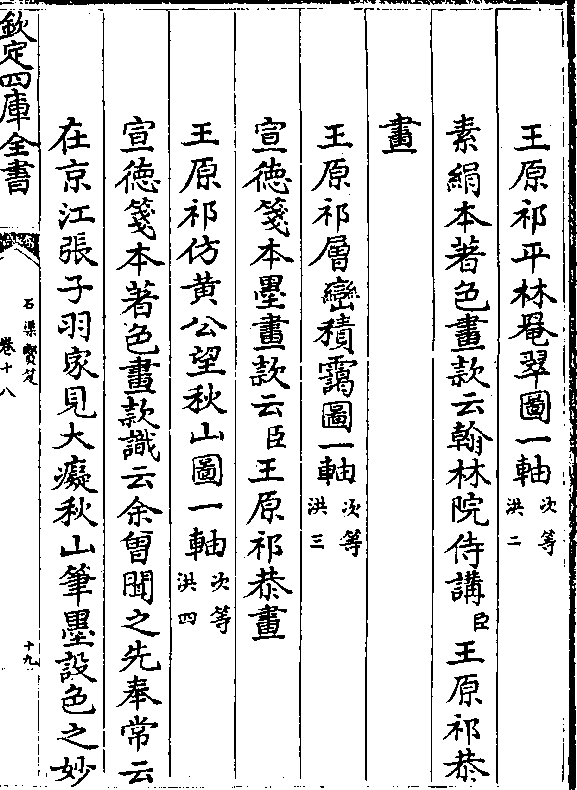 王原祁平林罨翠圖一軸次等洪二
素絹本著色畫款云翰林院侍講臣王原祁恭
畫
王原祁層巒積靄圖一軸次等洪三
宣德箋本墨畫款云臣王原祁恭畫
王原祁仿黄公望秋山圖一軸次等洪四
宣德箋本著色畫款識云余曾聞之先奉常云
在京江張子羽家見大癡秋山筆墨設色之妙
欽定四庫全書
石渠寳笈
卷十八
十九